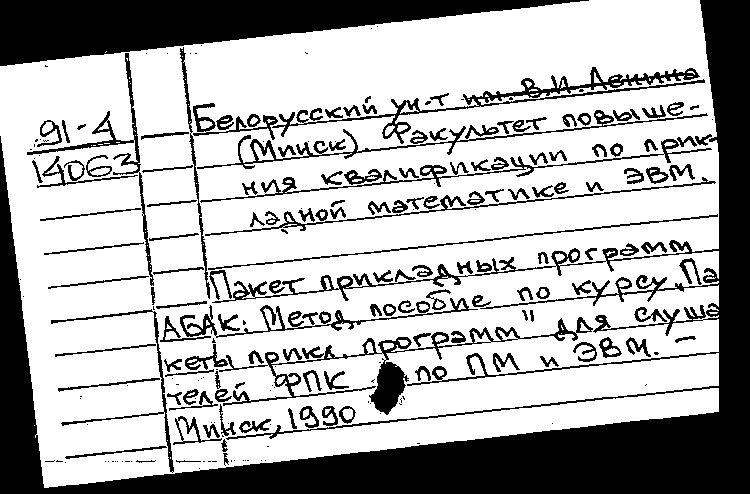 91-4
14063
Белорусский ун-т им. В.И. Ленина
(Минск). Факультет повыше-
ния квалификации по прик-
ладной математике и ЭВМ.
Пакет прикладных программ
АБАК: Метод. пособие по курсу „Па
кеты прикл. программ" для слуша
телей ФПК по ПМ и ЭВМ. –
Минск, 1990